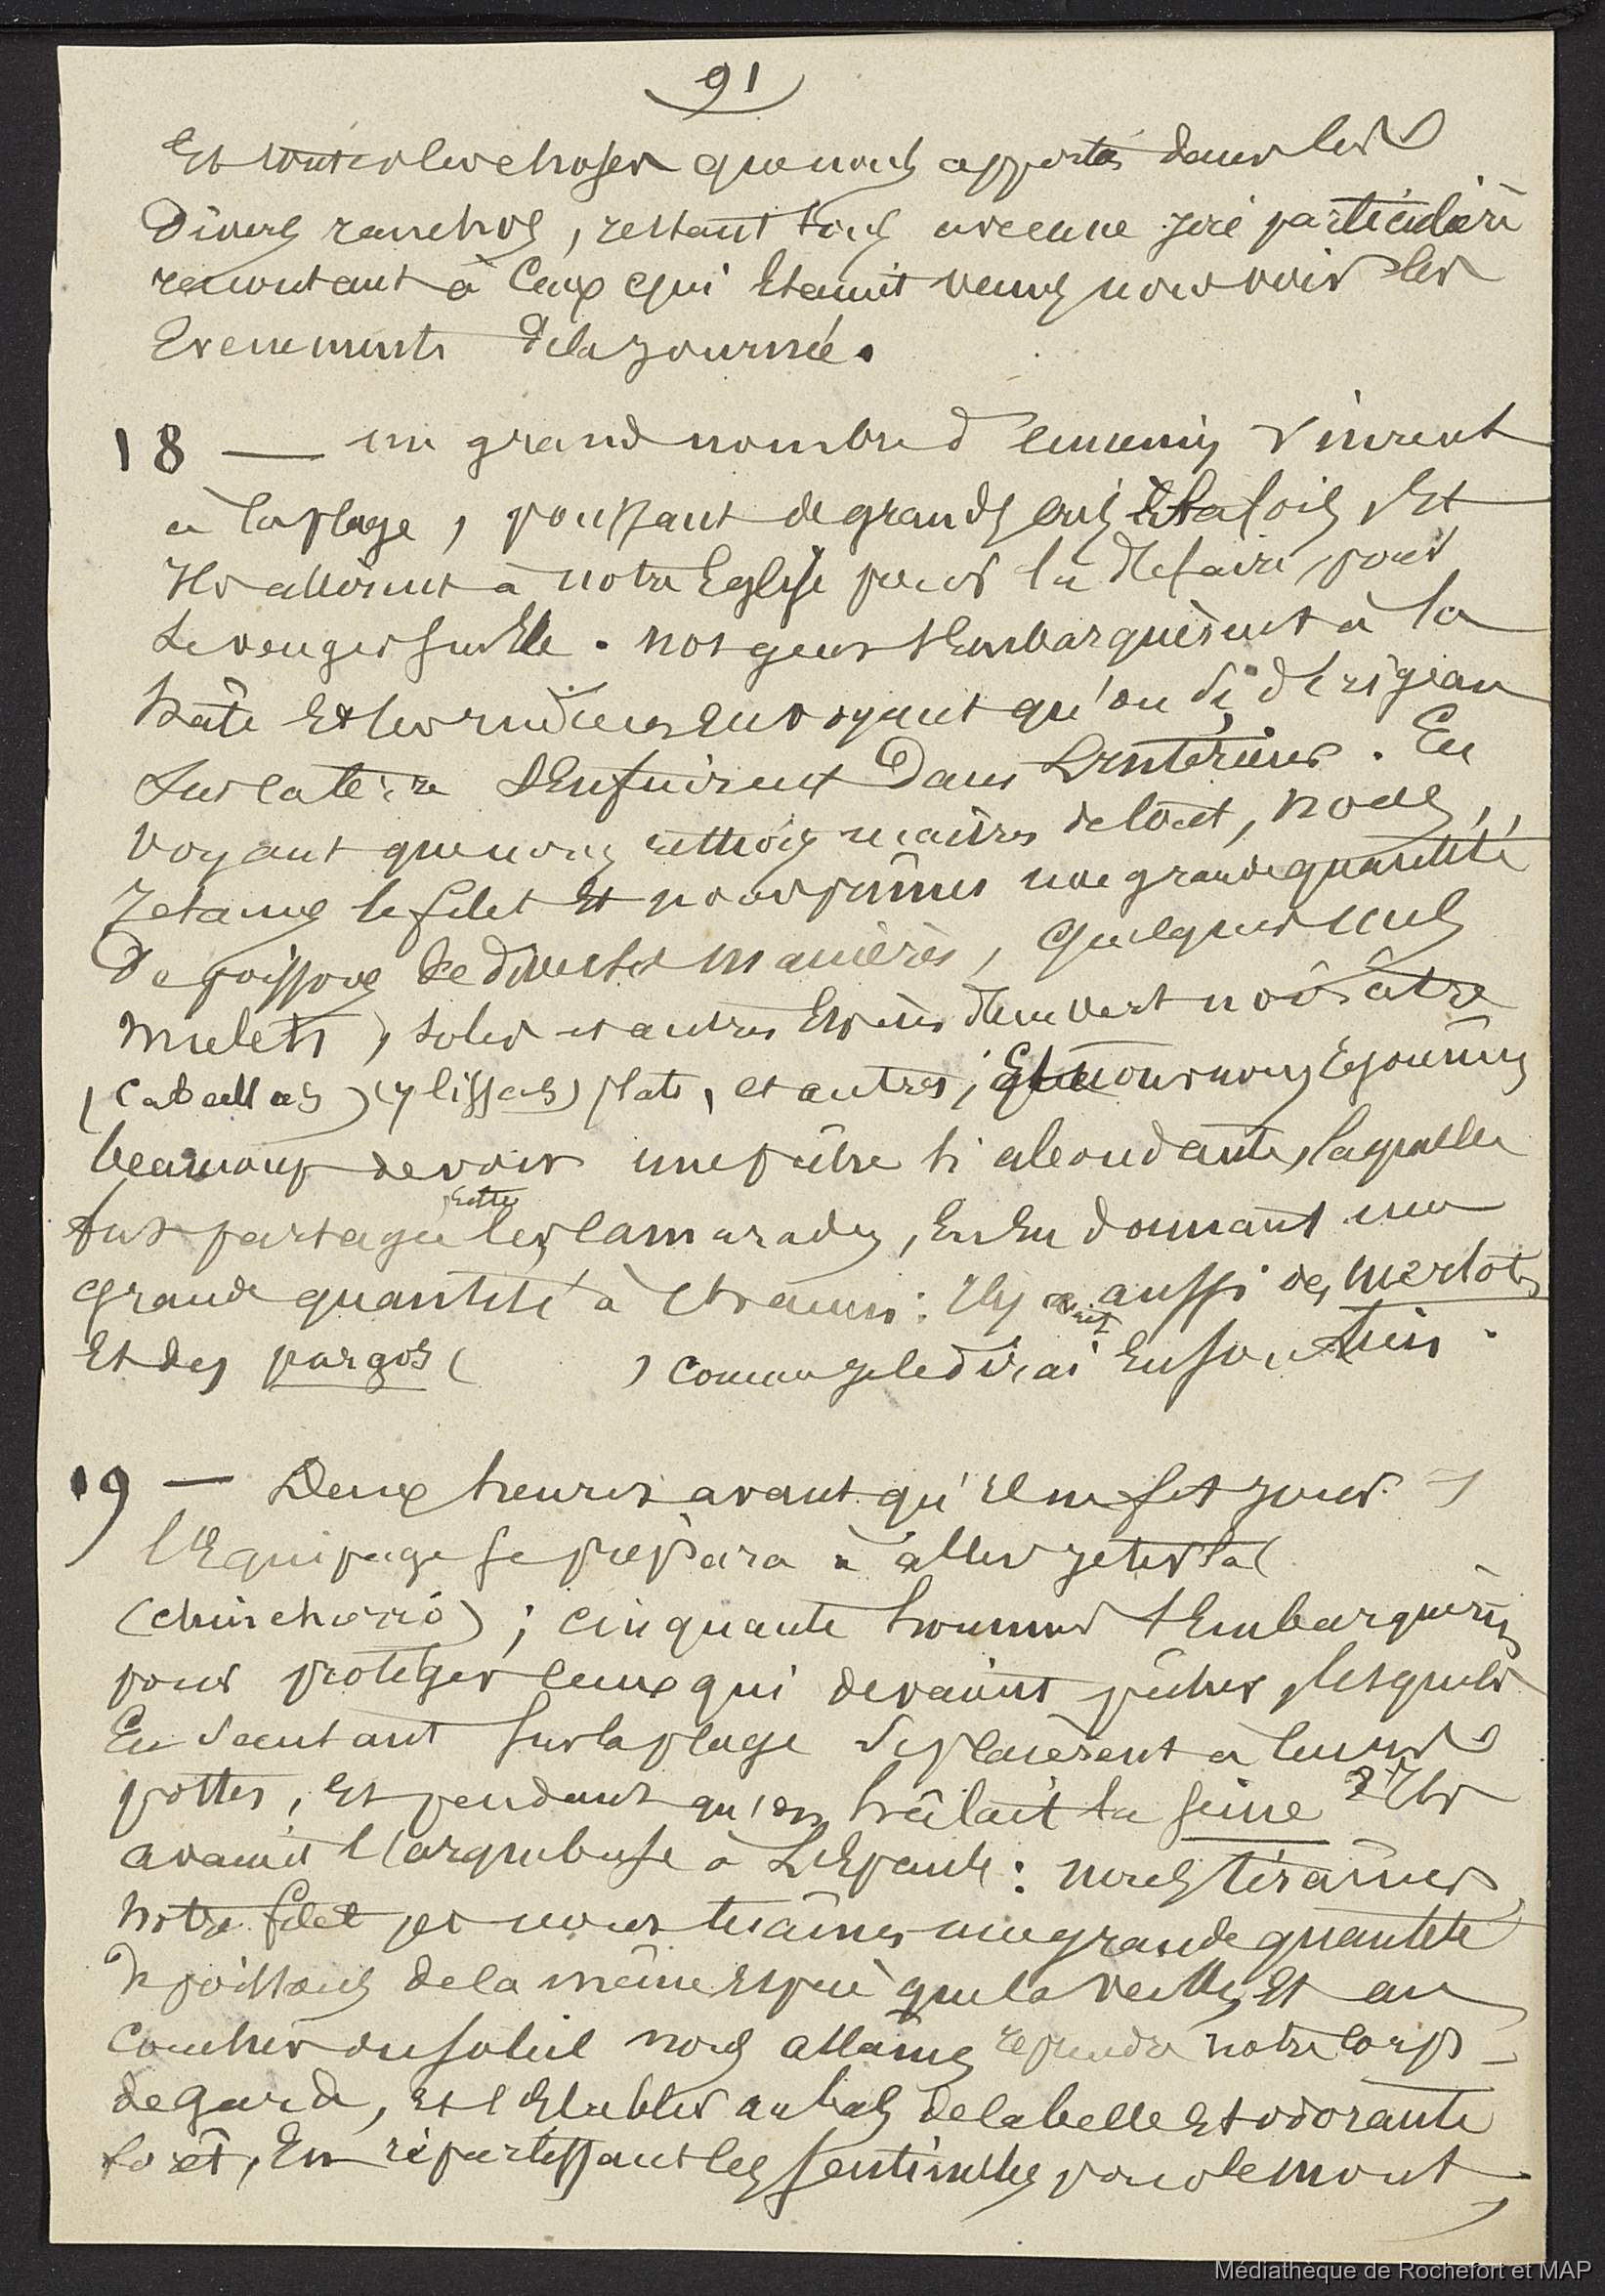 91
Et toutes les choses que nous apporté dans les
Divers ranchos, restant tous avec une joie particulière
racontant à Ceux qui Etaient venus nous voir les
Evenements de la journée.
18 — un grand nombre d'ennemis vinrent
à la plage, poussant de grands cris à la fois, Et
Ils allèrent à notre Eglise pour la défaire, pour
se venger sur Elle. nos gens s'Embarquèrent à la
hâte Et les indiens en voyant qu'on se dirigeait
sur la terre s'Enfuirent Dans L'interieur. En
voyant que nous étions maitres de tout, nous,
Jetames le filet Et nous prîmes une grande quantité
De poissons De diverses manières, quelques uns
mulets, soles et autres d'un vert noirâtre
(Caballas) (y lissas) plats, et autres; Et nous nous rejouimes
beaucoup de voir une pêche si abondante, laquelle
fut partagée entre les camarades, En En donnant une
grande quantité à : Il y avait aussi des merlots
Et des pargos ( ) comme je le dirai En son
19 — Deux heures avant qu'il ne fut jour
l'Equipage se prépara à aller jeter la (
(chinchorro); cinquante hommes s'Embarquèrent
pour protéger ceux qui devaient pêcher, lesquels
En sautant sur la plage se placèrent à leurs
postes, Et pendant qu'on hâlait la seine Ils
avaient l'arquebuse à L'Epaule: nous tirâmes
notre filet et nous tuâmes une grande quantité
De poissons de la même Espèce que la veille, Et au
coucher du soleil nous allâmes reprendre notre corps -
de garde, et l'Etablir au bas de la belle Et odorante
forêt, En répartissant les sentinelles par le mont,
Médiathèque de Rochefort et MAP